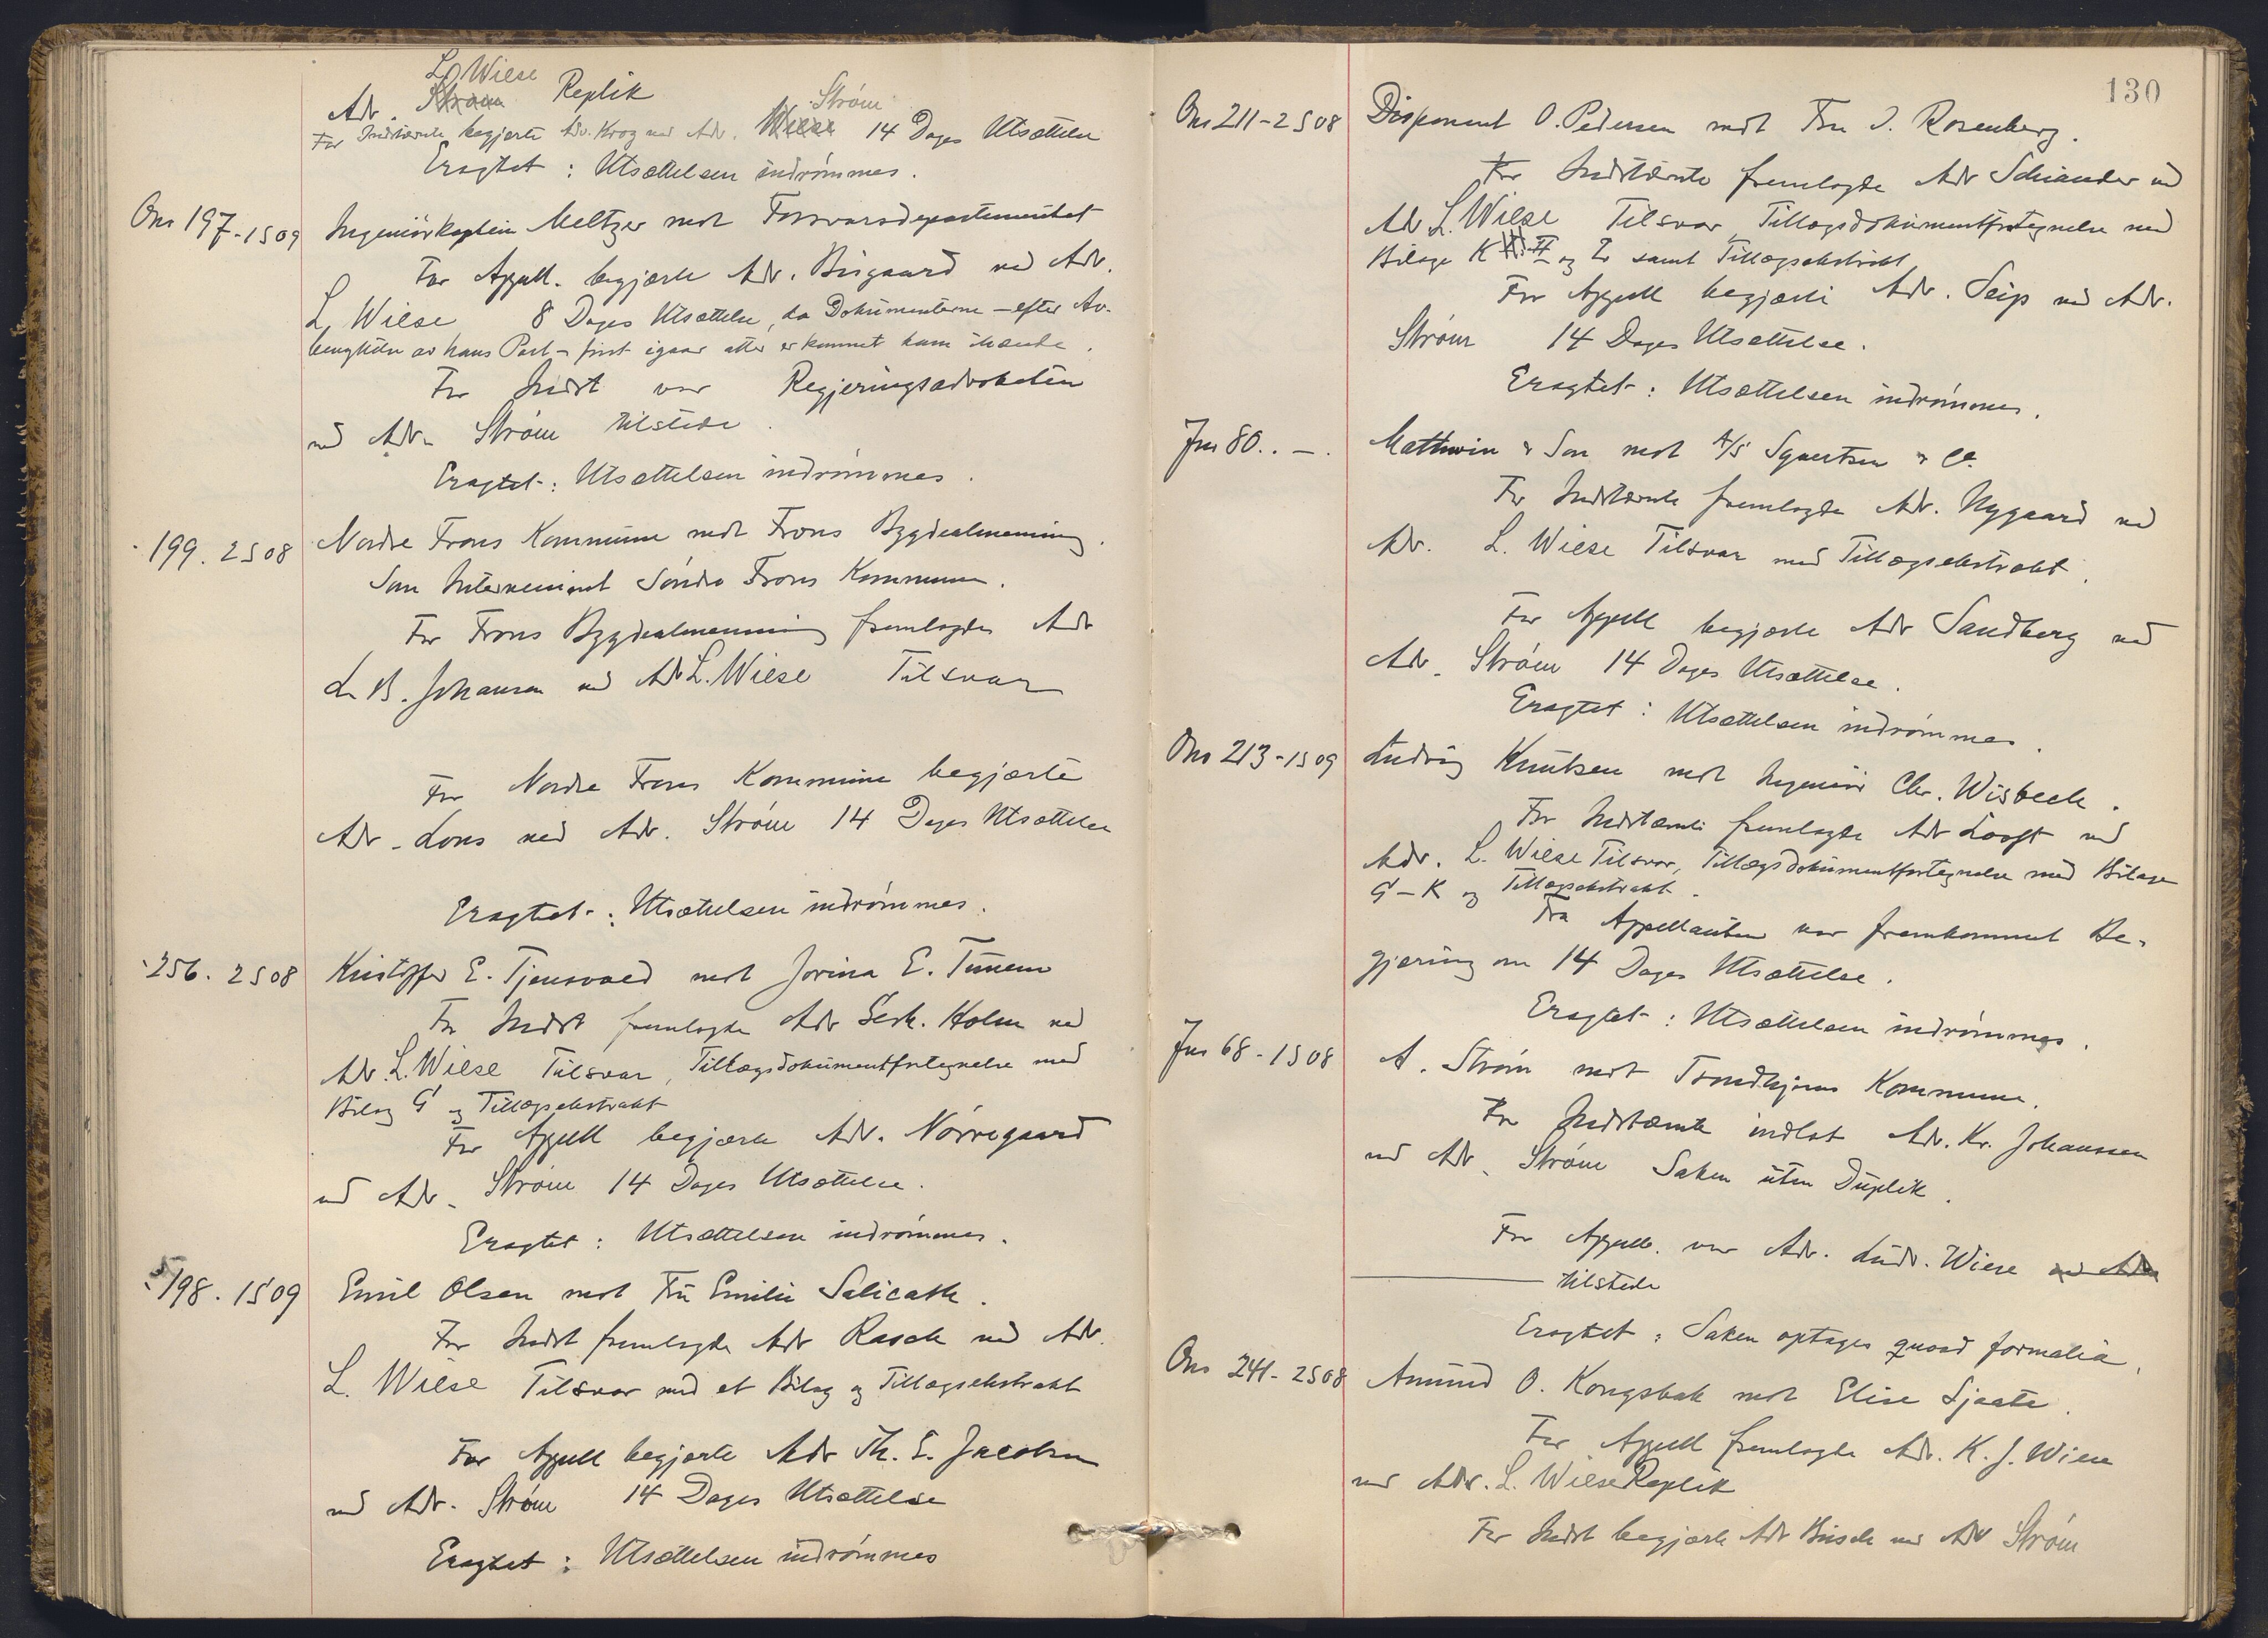 L. Wiese
Adv. Strøm Replik
Strøm
For Indstævnte begjærte Adv. Krog ved Adv. Wiese 14 Dages Utsættelse
Eragtet: Utsættelsen indrømmes.
Ons 197-1S09 Ingeniørkaptein Meltzer mot Forsvarsdepartementet
For Appell. begjærte Adv. Bisgaard ved Adv.
L. Wiese 8 Dages Utsættelse, da Dokumenterne – efter Av-
benyttelse av hans Part – først igaar atter er kommet ham ihænde.
For Indst var Regjeringsadvokaten
ved Adv. Strøm tilstede.
Eragtet: Utsættelsen indrømmes.
199. 2S08 Nordre Frons Kommune mot Frons Bygdealmenning.
Som Intervenient Søndre Frons Kommune.
For Frons Bygdealmenning fremlagde Adv
L. B. Johansen ved Adv L. Wiese Tilsvar
For Nordre Frons Kommune begjærte
Adv. Lous ved Adv. Strøm 14 Dages Utsættelse
Eragtet: Utsættelsen indrømmes.
256. 2S08 Kristoffer E. Tjensvold mot Jorina E. Tunem
For Indst fremlagde Adv Holm ved
Adv. L. Wiese Tilsvar, Tillægsdokumentfortegnelse med
Bilag G og Tillægsekstrakt
For Appell begjærte Adv. Nørregaard
ved Adv. Strøm 14 Dages Utsættelse.
Eragtet: Utsættelsen indrømmes.
198. 1S09 Emil Olsen mot Fru Emilie Salicath.
For Indst fremlagde Adv Rasch ved Adv.
L. Wiese Tilsvar med et Bilag og Tillægsekstrakt
For Appell begjærte Adv Th. S. Jacobsen
ved Adv. Strøm 14 Dages Utsættelse
Eragtet: Utsættelsen indrømmes
130
Ons 211-2S08 Disponent O. Pedersen mot Fru J. Rosenberg.
For Indstævnte fremlagde Adv Schiander ved
Adv L. Wiese Tilsvar, Tillægsdokumentfortegnelse med
Bilage K og L samt Tillægsekstrakt
For Appell begjærte Adv. Seip ved Adv.
Strøm 14 Dages Utsættelse.
Eragtet: Utsættelsen indrømmes.
Jus 80. . – . Mathwin & Son mot A/S Syvertsen & Co.
For Indstævnte fremlagde Adv. Nygaard ved
Adv. L. Wiese Tilsvar med Tillægsekstrakt.
For Appell begjærte Adv Sandberg ved
Adv. Strøm 14 Dages Utsættelse.
Eragtet: Utsættelsen indrømmes.
Ons 213-1S09 Ludvig Knutsen mot Ingeniør Chr. Wisbech.
For Indstævnte fremlagde Adv Looft ved
Adv. L. Wiese Tilsvar, Tillægsdokumentfortegnelse med Bilage
G – K og Tillægsekstrakt.
Fra Appellanten var fremkommet Be-
gjæring om 14 Dages Utsættelse.
Eragtet: Utsættelsen indrømmes.
Jus 68-1S08 A. Strøm mot Trondhjems Kommune.
For Indstævnte indlot Adv. Kr. Johanssen
ved Adv. Strøm Saken uten Duplik.
For Appell. var Adv. Ludv. Wiese ved Adv
tilstede
Eragtet: Saken optages quoad formalia.
Ons 241-2S08 Amund O. Kongsbak mot Elise Sjaata.
For Appell fremlagde Adv. K. J. Wiese
ved Adv. L. Wiese Replik
For Indst begjærte Adv Busch ved Adv Strøm